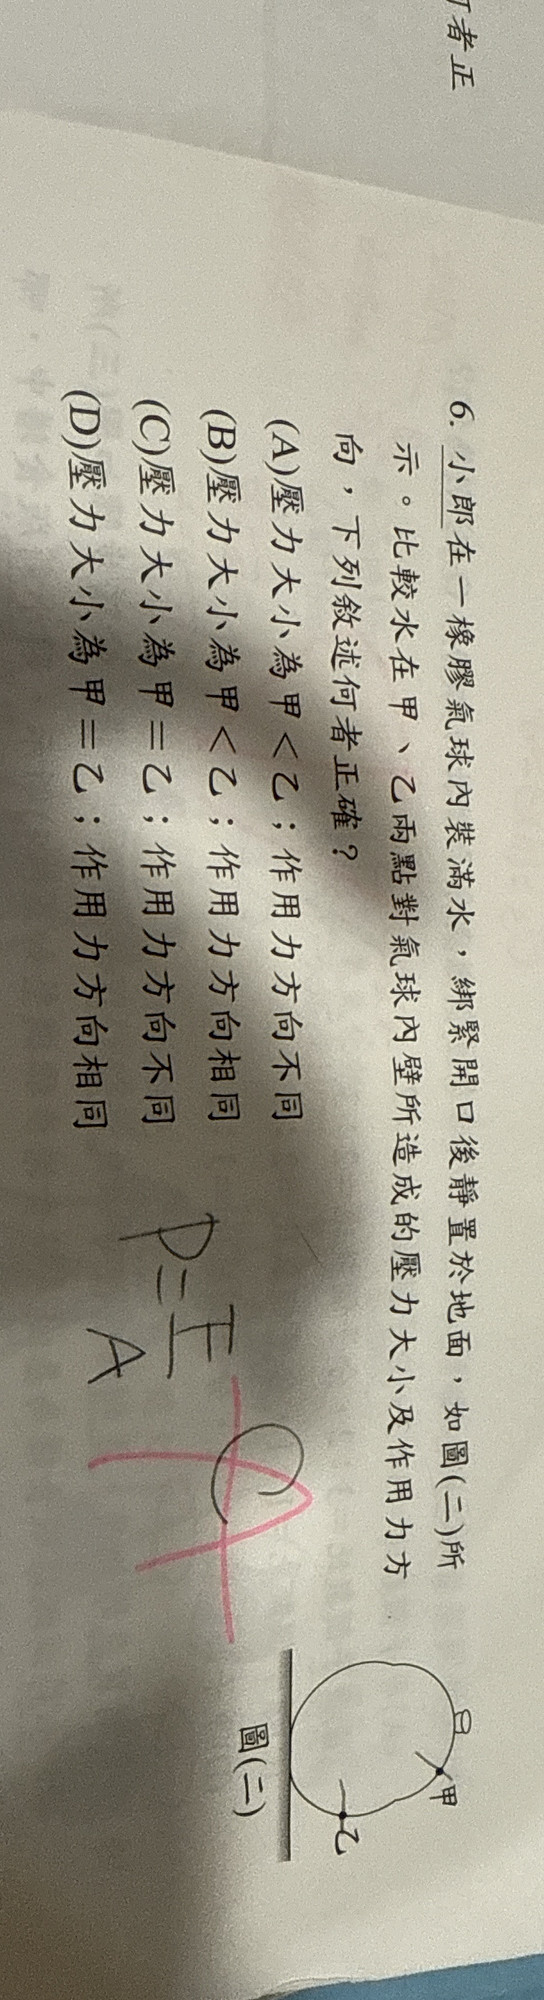 者正
6. 小郎在一橡膠氣球內裝滿水，綁緊開口後靜置於地面，如圖(二)所
示。比較水在甲、乙兩點對氣球內壁所造成的壓力大小及作用力方
向，下列敘述何者正確？
(A)壓力大小為甲＜乙；作用力方向不同
(B)壓力大小為甲＜乙；作用力方向相同
(C)壓力大小為甲＝乙；作用力方向不同
(D)壓力大小為甲＝乙；作用力方向相同
P=F/A
C
A
甲
乙
圖(二)